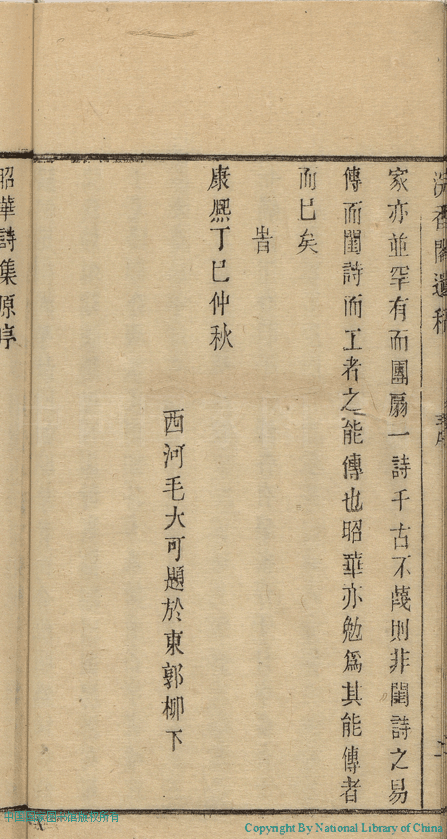 香閣遺稿
序
家亦並罕有而團扇一詩千古不蔑則非閨詩之易
傳而閨詩而工者之能傳也昭華亦勉爲其能傳者
而已矣
旹
康熈丁巳仲秋
西河毛大可題於東郭柳下
昭華詩集原序
中国国家图书馆版权所有
Copyright By National Library of China